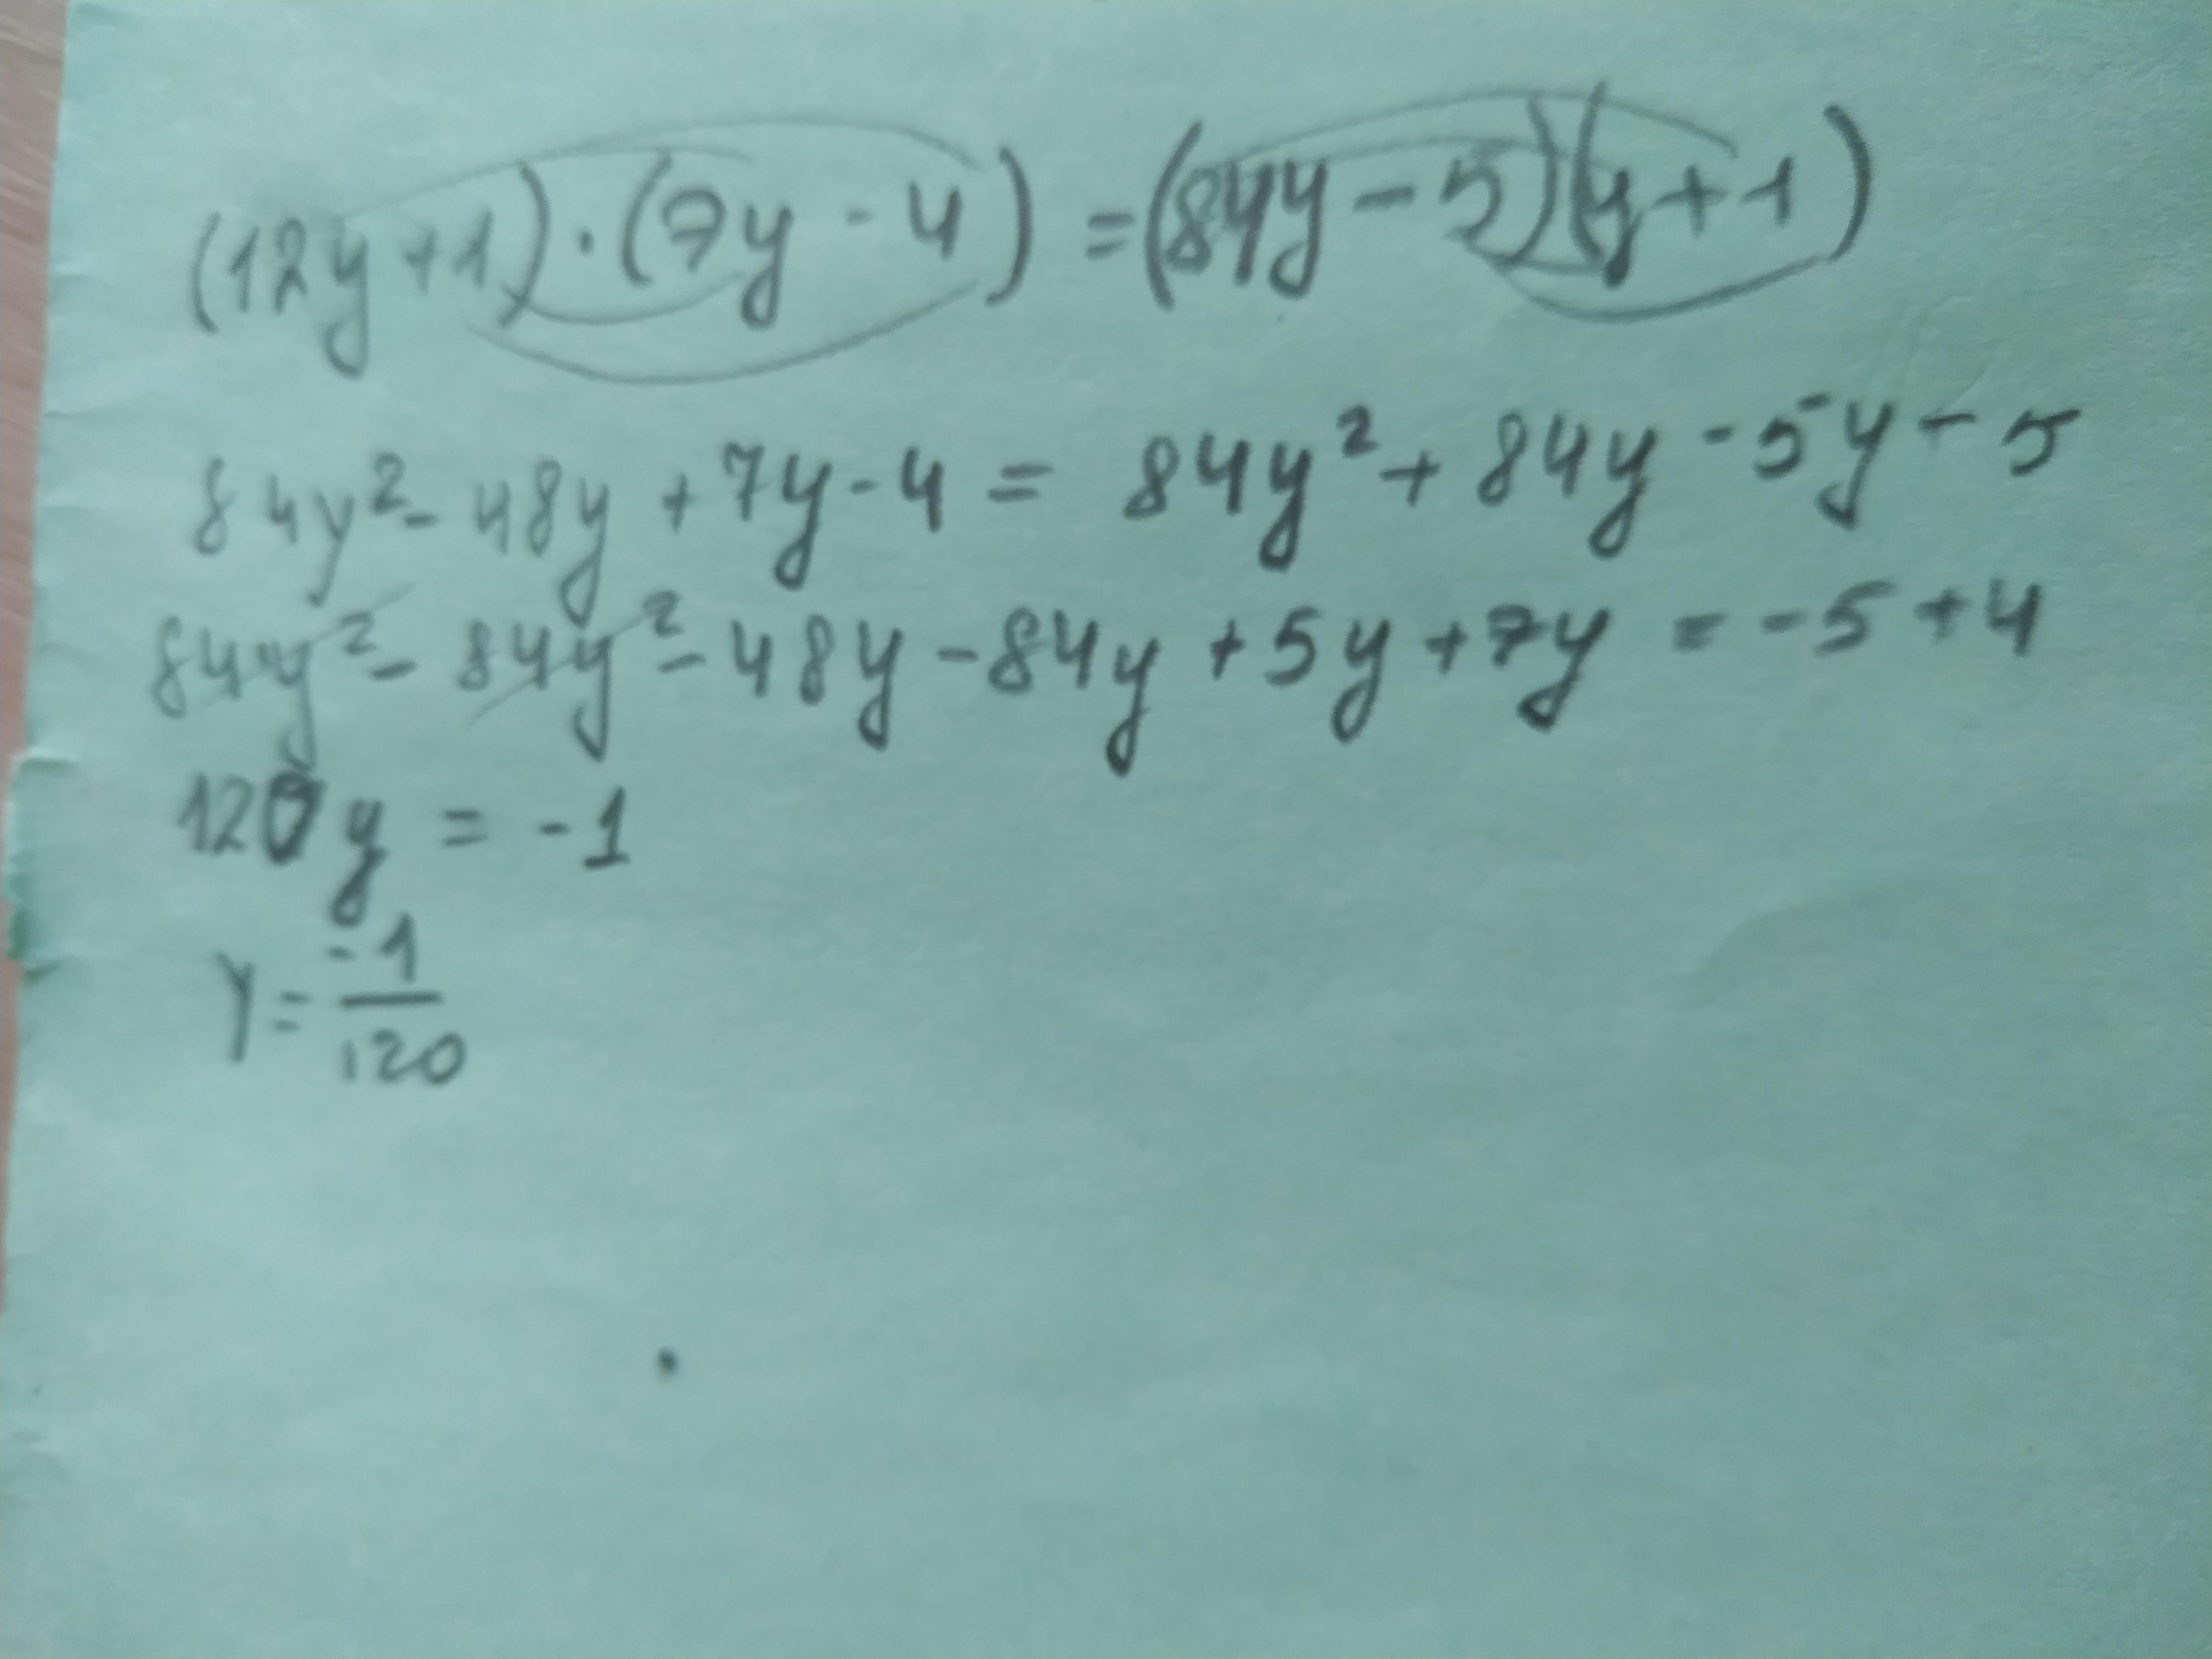 (12y+1)·(7y-4)=(84y-5)(y+1)
84y²-48y+7y-4=84y²+84y-5y-5
84y²-84y²-48y-84y+5y+7y=-5+4
120y=-1
y=-1/120